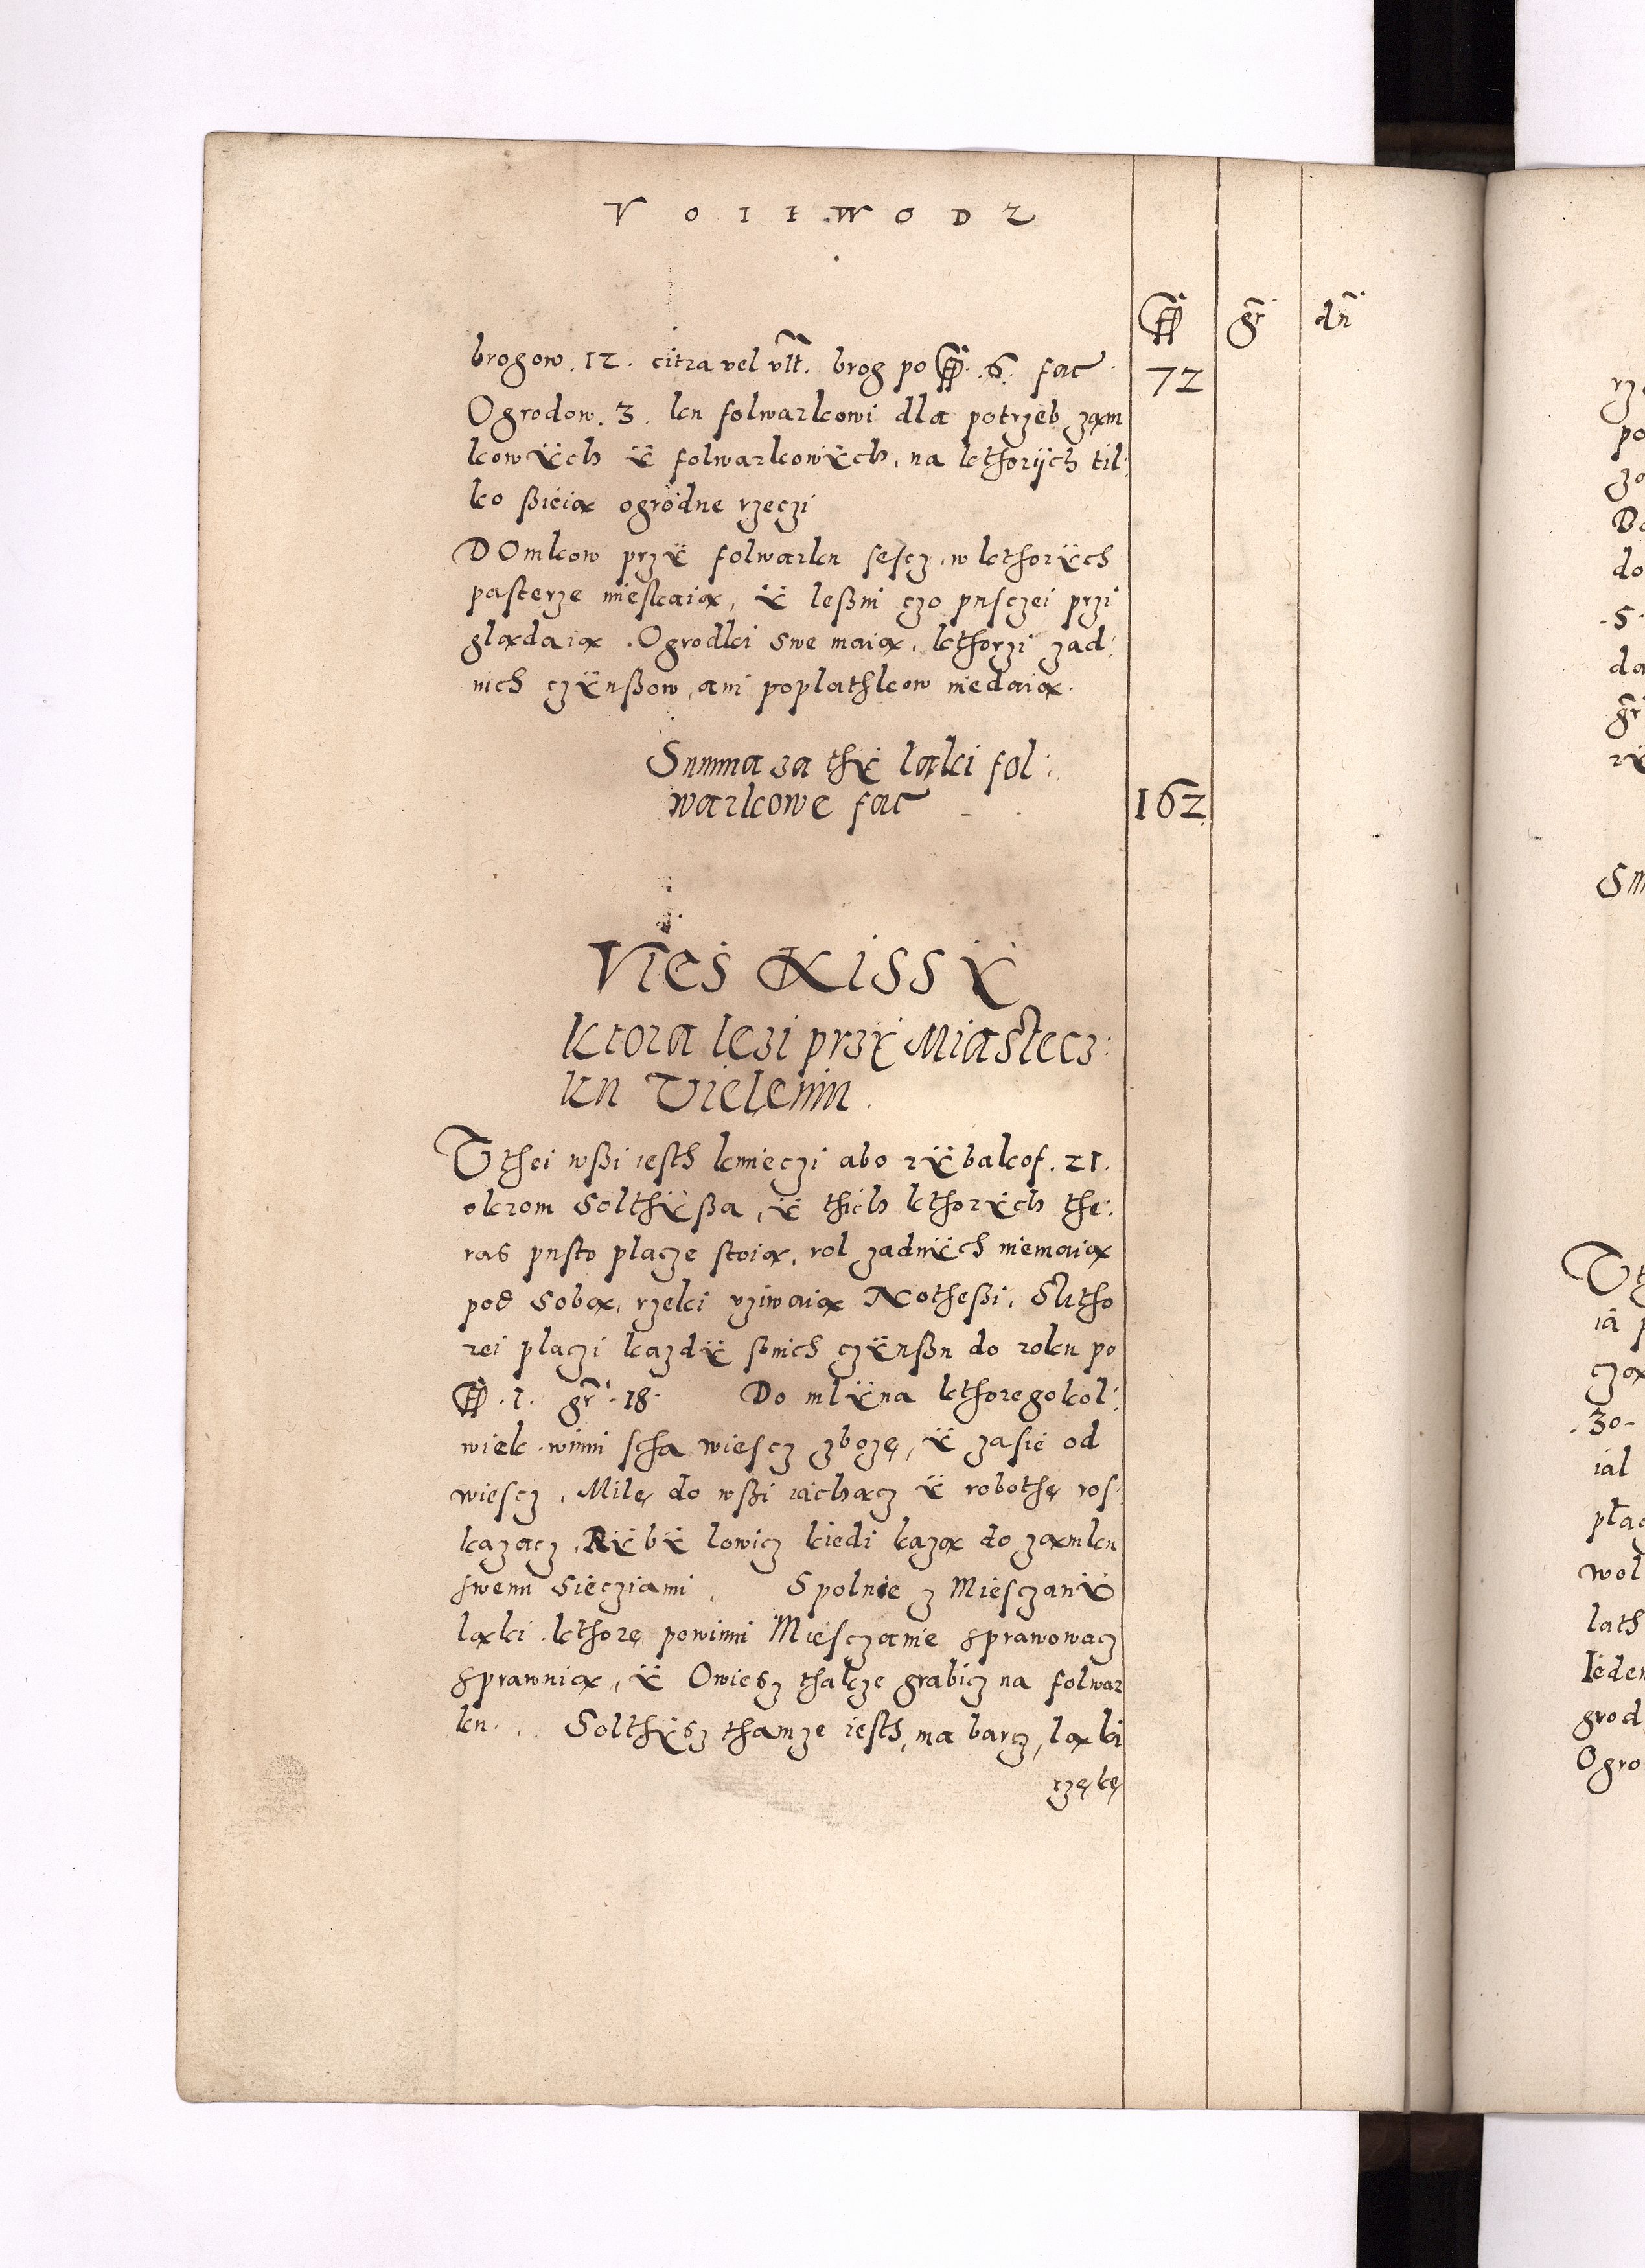 V O I E W O D Z
ff gr dn
brogow . 12 . citra vel vlt. brog po ff . 6 . fac 72
Ogrodow . 3 . ku folwarkowi dla potrzeb zam
kowÿch ÿ folwarkowÿch, na kthorijch til:
ko ßieią ogrodne rzeczi
DOmkow przÿ folwarku sescz, w kthorÿch
pasterze mieskaią, ÿ leßni czo pusczei przi
glądaią . Ogrodki swe maią, kthorzi zad:
nich czÿnßow, ani poplathkow niedaią.
Summa za thÿ ląki fol:
warkowe fac 162
Vies Kissÿ
Ktora lezi przÿ Miastecz:
ku Vieleniu .
W thei wßi iesth kmieczi abo rÿbakof . 21 .
okrom Solthÿßa, ÿ thich kthorÿch the:
ras pusto placze stoią, rol zadnÿch niemaią
pod sobą, rzeki vziwaią Notheßi, S ktho
rei placzi kazdÿ ßnich czÿnßu do roku po
ff . 1 . gr . 18 . Do mlÿna kthoregokol:
wiek winni scha wiescz zbozę, ÿ zasie od
wiescz, Milę do wßi iachacz ÿ robothę ros:
kazacz . Rÿbÿ lowicz kiedi kazą do zamku
swemi sieczjami . Spolnie z Miesczanÿ
ląki kthorę powinni Miesczanie sprawowacz
sprawuią, ÿ Owiesz thakze grabicz na folwar
ku . Solthÿsz thamze iesth, ma barcz, ląki
rzękę